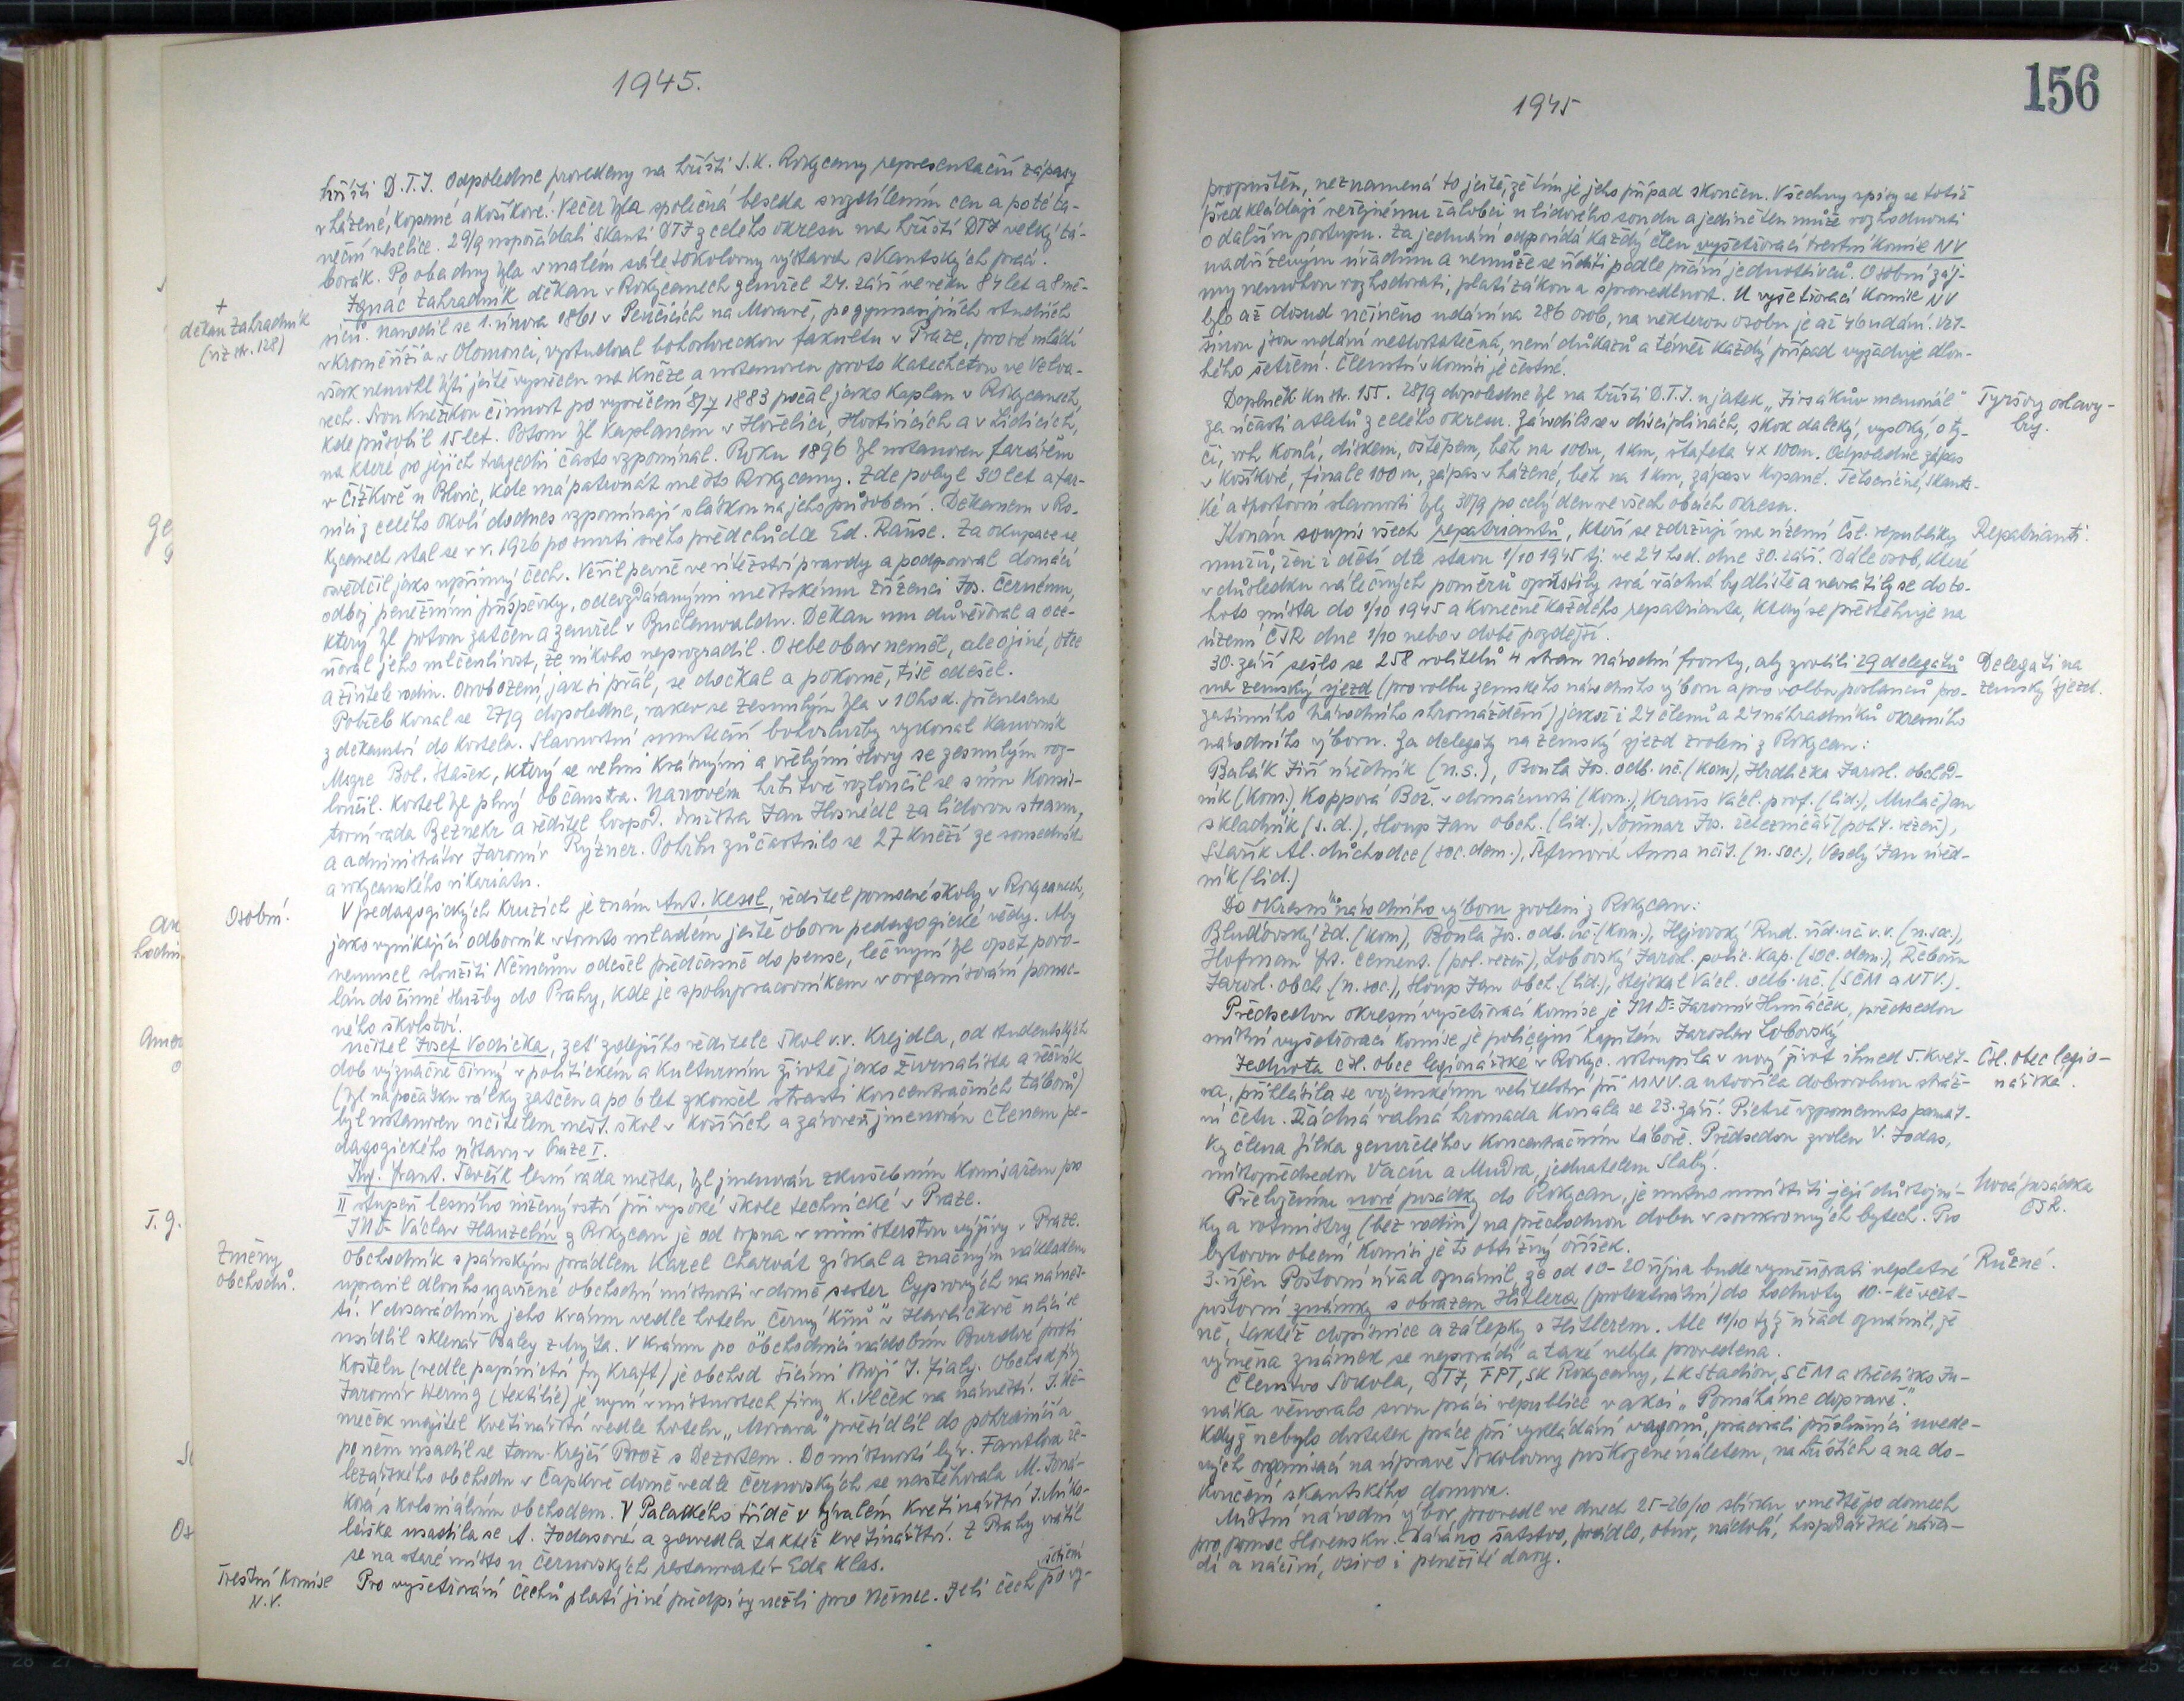 1945.
hřišti D.T.J. Odpoledne provedeny na hřišti S.K. Rokycany representační zápasy
v házené, kopané a košíkové. Večer byla společná beseda s rozdílením cen a poté ta-
neční veselice. 29/9 uspořádali skauti DTJ z celého okresu na hřišti DTJ velký tá-
borák. Po oba dny byla v malém sále sokolovny výstava skautských prací.
+
děkan Zahradník
(viz str. 128)
Ignác Zahradník děkan v Rokycanech zemřel 24. září ve věku 84 let a 8 mě-
síců. Narodil se 1. února 1861 v Penčicích na Moravě, po gymnasijních studiích
v Kroměříži a v Olomouci, vystudoval bohosloveckou fakultu v Praze, pro své mládí
však nemohl býti ještě vysvěcen na kněze a ustanoven proto katechetou ve Velva-
rech. Svou kněžskou činnost po vysvěcení 8/7 1883 počal jako kaplan v Rokycanech,
kde působil 15 let. Potom byl kaplanem v Hořelici, Hostivicích a v Lidicích,
na které po jejich tragedii často vzpomínal. Roku 1896 byl ustanoven farářem
v Čižkově u Blovic, kde má patronát město Rokycany. Zde pobyl 30 let a far-
níci z celého okolí dodnes vzpomínají s láskou na jeho působení. Děkanem v Ro-
kycanech stal se v r. 1926 po smrti svého předchůdce Ed. Rause. Za okupace se
osvědčil jako upřímný Čech. Věřil pevně ve vítězství pravdy a podporoval domácí
odboj peněžními příspěvky, odevzdávanými městskému zřízenci Jos. Černému,
který byl potom zatčen a zemřel v Buchenwaldu. Děkan mu důvěřoval a oce-
ňoval jeho mlčenlivost, že nikoho neprozradil. O sebe obav neměl, ale o jiné, otce
a živitele rodin. Osvobození, jak si přál, se dočkal a pokorně, tiše odešel.
Pohřeb konal se 27/9 dopoledne, rakev se zesnulým byla v 10 hod. přenesena
z děkanství do kostela. Slavnostní smuteční bohoslužby vykonal kanovník
Msgre Bol. Stašek, který se velmi krásnými a vřelými slovy se zesnulým roz-
loučil. Kostel byl plný občanstva. Na novém hřbitově rozloučil se s ním konsis-
torní rada Beznekr a ředitel hospod. družstva Jan Hosnedl za lidovou stranu,
a administrátor Jaromír Ryzner. Pohřbu zúčastnilo se 27 kněží ze sousedních
a rokycanského vikariátu.
Osobní.
V pedagogických kruzích je znám Ant. Kessl, ředitel pomocné školy v Rokycanech,
jako vynikající odborník v tomto mladém ještě oboru pedagogické vědy. Aby
nemusel sloužiti Němcům odešel předčasně do pense, leč nyní byl opět povo-
lán do činné služby do Prahy, kde je spolupracovníkem v organisování pomoc-
ného školství.
Učitel Josef Vodička, zeť zdejšího ředitele škol v.v. Krejdla, od studentských
dob význačně činný v politickém a kulturním životě jako žurnalista a řečník
(byl na počátku války zatčen a po 6 let zkoušel strasti koncentračních táborů)
byl ustanoven učitelem měšť. škol v Košířích a zároveň jmenován členem pe-
dagogického ústavu v Praze I.
Ing. Frant. Tavčík lesní rada města, byl jmenován zkušebním komisařem pro
II stupeň lesního inženýrství při vysoké škole technické v Praze.
JUDr Václav Hanzelín z Rokycan je od srpna v ministerstvu výživy v Praze.
Změny
obchodů.
Obchodník s pánským prádlem Karel Charvát získal a značným nákladem
upravil dlouho uzavřené obchodní místnosti v domě sester Cyprových na náměs-
tí. V dosavadním jeho krámu vedle hotelu "Černý kůň" v Havlíčkově ulici se
usídlil sklenář Baley z Mýta. V krámu po obchodnici nádobím Burdové proti
kostelu (vedle papírnictví fry Kraft) je obchod šicími stroji J. Fialy. Obchod firy
Jaromír Wernig (textilie) je nyní v místnostech firmy K. Vlček na náměstí. J. Ně-
meček majitel květinářství vedle hotelu "Morava" přesídlil do pohraničí a
po něm usadil se tam krejčí Brož s Dezortem. Do místností býv. Fantlova že-
lezářského obchodu v Čapkově domě vedle Černovských se nastěhovala M. Joná-
ková s koloniálním obchodem. V Palackého třídě v bývalém květinářství J. Miko-
láška usadila se A. Jodasová a zavedla taktéž květinářství. Z Prahy vrátil
se na staré místo u Černovských restauratér Eda Klas.
Trestní komise
N.V.
Pro vyšetřování Čechů platí jiné předpisy nežli pro Němce. Je-li Čech po vy-
šetření
156
1945
propuštěn, neznamená to ještě, že tím je jeho případ skončen. Všechny spisy se totiž
předkládají veřejnému žalobci u lidového soudu a jedině ten může rozhodnouti
o dalším postupu. Za jednání odpovídá každý člen vyšetřovací trestní komise NV
nadřízeným úřadům a nemůže se říditi podle přání jednotlivců. Osobní záj-
my nemohou rozhodovati, platí zákon a spravedlnost. U vyšetřovací komise NV
bylo až dosud učiněno udání na 286 osob, na některou osobu je až 46 udání. Vět-
šinou jsou udání nedostatečná, není důkazů a téměř každý případ vyžaduje dlou-
hého šetření. Členství v komisi je čestné.
Tyršovy oslavy-
hry.
Doplněk ku str. 155. 28/9 dopoledne byl na hřišti D.T.J. ujat​ek "Jirsákův memoriál"
za účasti atletů z celého okresu. Závodilo se v disciplinách, skok daleký, vysoký, o ty-
či, vrh koulí, diskem, oštěpem, běh na 100m, 1 km, štafeta 4 x 100m. Odpoledne zápas
v košíkové, finale 100m, zápas v házené, běh na 1 km, zápas v kopané. Tělocvičné, skauts-
ké a sportovní slavnosti byly 30/9 po celý den ve všech obcích okresu.
Repatrianti.
Konán soupis všech repatriantů, kteří se zdržují na území čsl. republiky
mužů, žen i dětí dle stavu 1/10 1945 tj. ve 24 hod. dne 30. září. Dále osob, které
v důsledku válečných poměrů opustily svá řádná bydliště a nevrátily se do to-
hoto místa do 1/10 1945 a konečně každého repatrianta, který se přestěhuje na
území ČSR dne 1/10 nebo v době pozdější.
Delegáti na
zemský sjezd.
30. září sešlo se 258 volitelů 4 stran Národní fronty, aby zvolili 29 delegátů
na zemský sjezd (pro volbu zemského národního výboru a pro volbu poslanců pro-
zatímního Národního shromáždění) jakož i 24 členů a 24 náhradníků okresního
národního výboru. Za delegáty na zemský sjezd zvoleni z Rokycan:
Babák Jiří úředník (n.s.), Bouta Jos. odb. uč. (kom), Hrdlička Jarosl. obchod-
ník (kom.), Koppová Bož. v domácnosti (kom.), Kraus Václ. prof. (lid.), Mulač Jan
skladník (s.d.), Houp Jan obch. (lid.), Sommar Jos. železničář (polit. vězeň),
Stařík Al. důchodce (soc.dem.), Anna učit. (n.soc.), Veselý Jan úřed-
ník (lid.)
Do okresního národního výboru zvoleni z Rokycan:
Bludovský Zd. (kom), Bouta Jos. odb. uč. (kom.), Hejrovský Rud. říd. uč. v.v. (n.soc.),
Hofman Fr. cement. (pol. vězeň), Lobovský Jarosl. polic. kap. (soc.dem.), Řeboun
Jarosl. obch. (n.soc.), Houp Jan obch. (lid.), Stejskal Václ. odb. uč. (SČM a NTV.).
Předsedou okresní vyšetřovací komise je JUDr Jaromír Husáček, předsedou
místní vyšetřovací komise je policejní kapitán Jaroslav Lobovský
Čsl. obec legio-
nářská.
Jednota čsl. obce legionářské v Rokyc. vstoupila v nový život ihned 5. květ-
na, přihlásila se vojenskému velitelství při MNV. a utvořila dobrovolnou stráž-
ní četu. Řádná valná hromada konala se 23. září. Pietně vzpomenuto památ-
ky člena Jílka zemřelého v koncentračním táboře. Předsedou zvolen V. Jodas,
místopředsedou Vacín a Mudra, jednatelem Slabý.
Nová posádka
ČSR.
Přeložením nové posádky do Rokycan, je nutno umístiti její důstojní-
ky a rotmistry (bez rodin) na přechodnou dobu v soukromých bytech. Pro
bytovou obecní komisi je to obtížný oříšek.
Různé.
3. říjen Poštovní úřad oznámil, že od 10-20 října bude vyměňovati neplatné
poštovní známky s obrazem Hitlera (protektorátní) do hodnoty 10.- Kč včet-
ně, taktéž dopisnice a zálepky s Hitlerem. Ale 11/10 týž úřad oznámil, že
výměna známek se neprovádí a také nebyla provedena.
Členstvo Sokola, DTJ, FPT, SK Rokycany, LK Stadion, SČM a středisko Ju-
náka věnovalo svou práci republice v akci "Pomáháme dopravě".
Když nebylo dostatek práce při vykládání vagonů, pracovali příslušníci uvede-
ných organisací na úpravě Sokolovny poškozené náletem, na hřištích a na do-
končení skautského domova.
Místní národní výbor provedl ve dnech 25-26/10 sbírku v městě po domech
pro pomoc Slovensku. Dáváno šatstvo, prádlo, obuv, nádobí, hospodářské nářa-
dí a náčiní, osivo i peněžité dary.